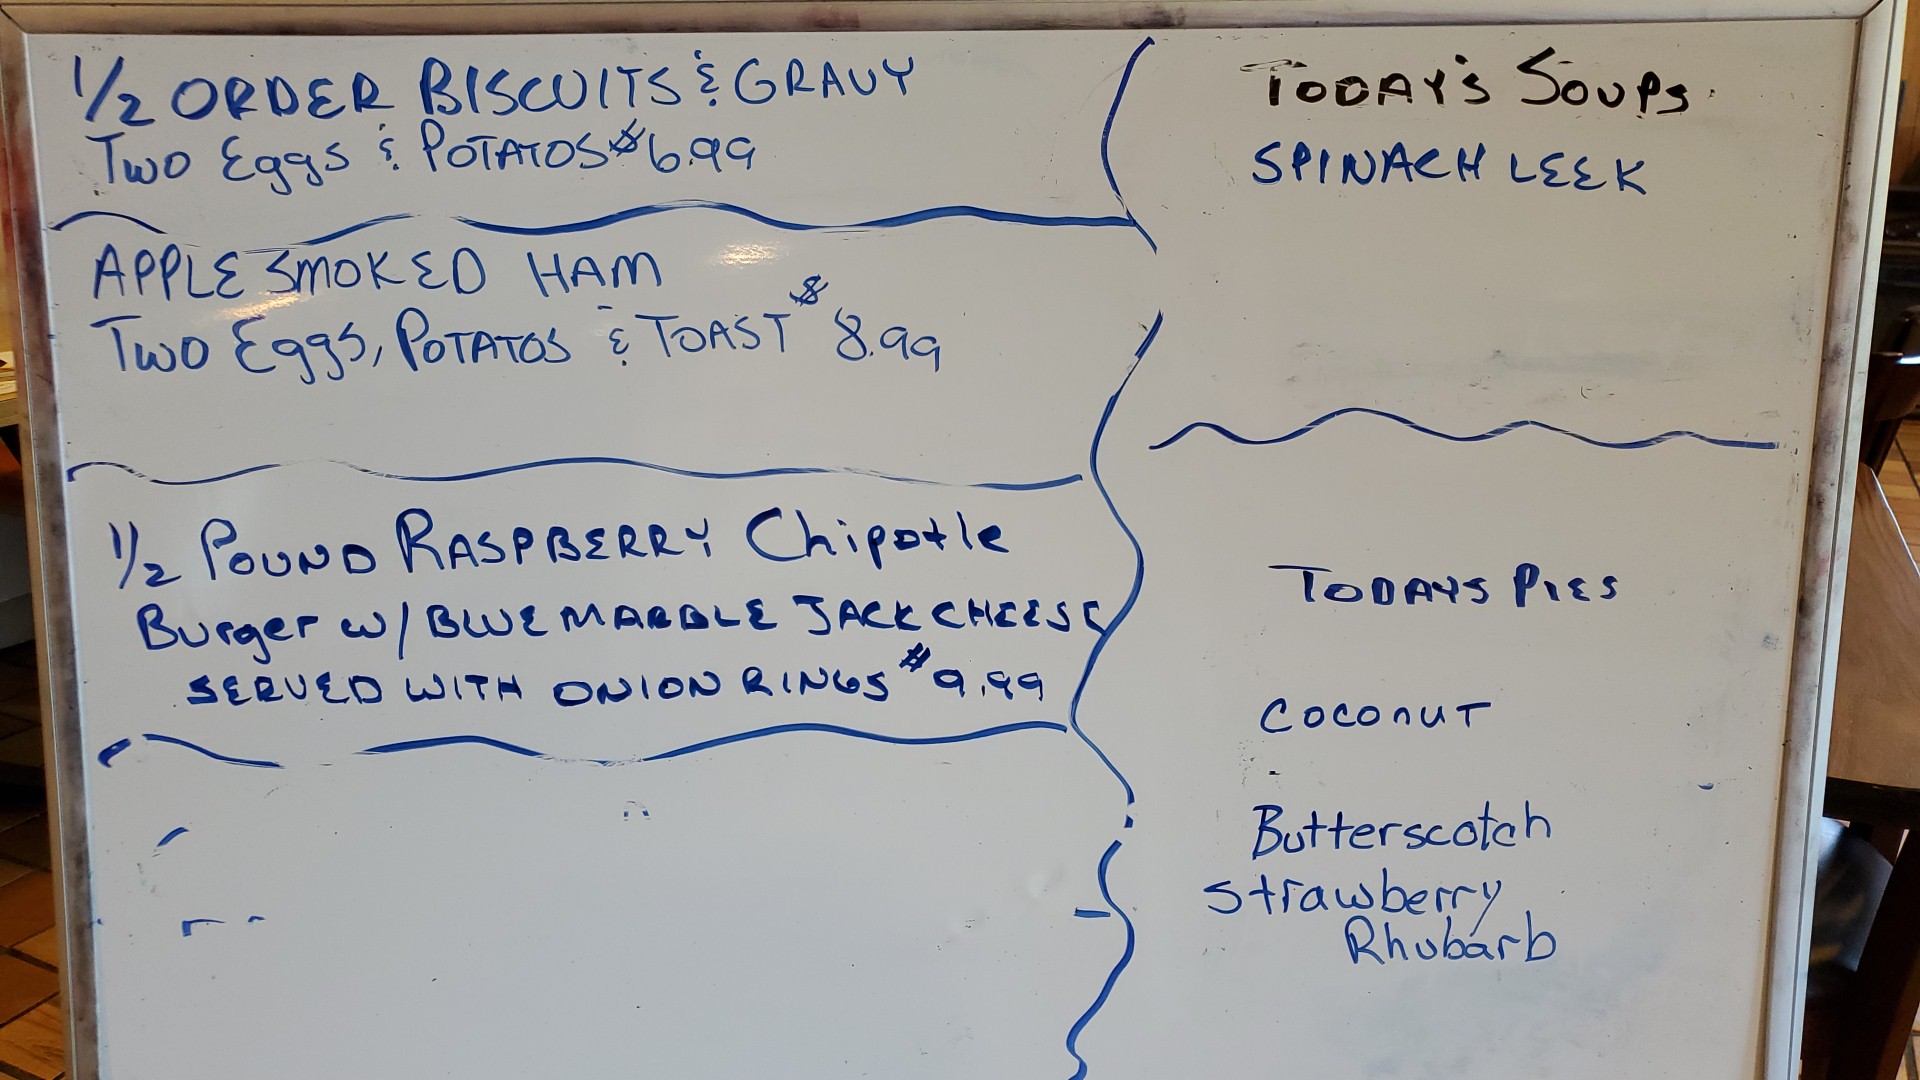 1/2 ORDER BISCUITS & GRAVY
Two Eggs & POTATOS $6.99
APPLE SMOKED HAM
Two Eggs, POTATOS & TOAST $8.99
1/2 POUND RASPBERRY Chipotle
Burger w/ BLUE MARBLE JACK CHEESE
SERVED WITH ONION RINGS $9.99
TODAY'S SOUPS
SPINACH LEEK
TODAYS PIES
COCONUT
Butterscotch
Strawberry
Rhubarb